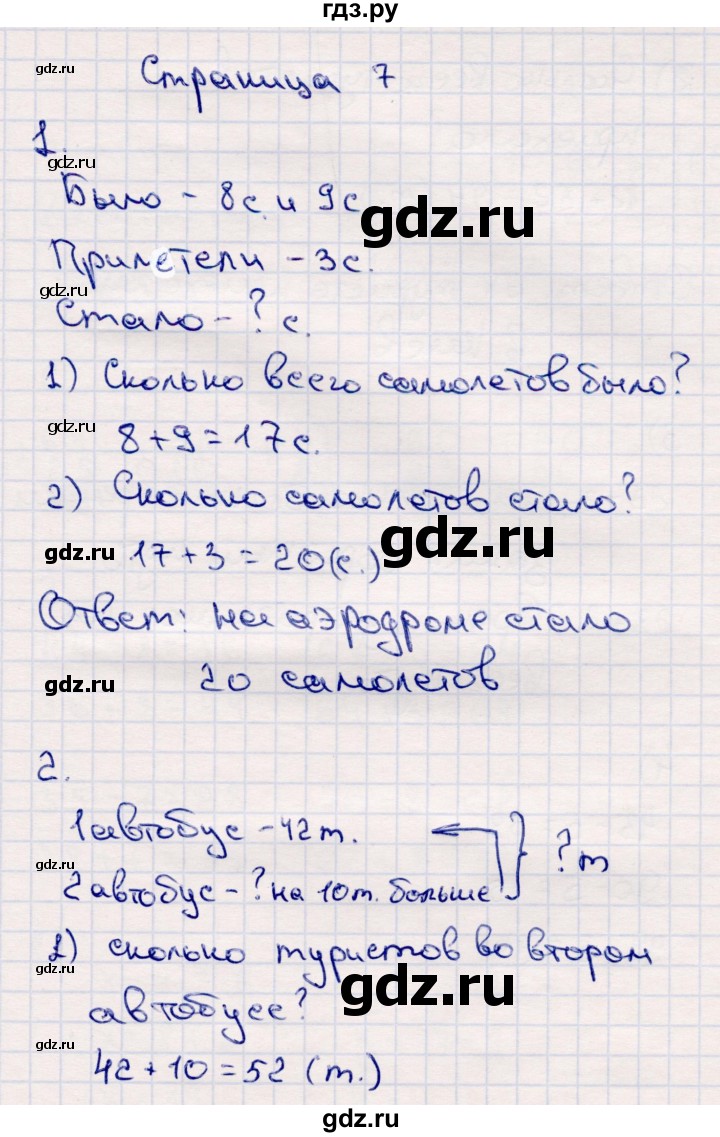 гдз.ру
gdz.ru
Страница 7
1.
gdz.ru
Было - 8с и 9с
gdz.ru
gdz.ru
Прилетели - 3с.
gdz.ru
Стало - ? с.
1) Сколько всего самолетов было?
gdz.ru
8+9=17с.
2) Сколько самолетов стало?
gdz.ru
gdz.ru
17+3=20(с.)
Ответ: на аэродроме стало
gdz.ru
20 самолетов
2.
1 автобус - 42т.
?т
gdz.ru
2 автобус - ? на 10т. больше
1) сколько туристов во втором
gdz.ru
gdz.ru
автобусе?
gdz.ru
42+10=52 (т.)
gdz.ru